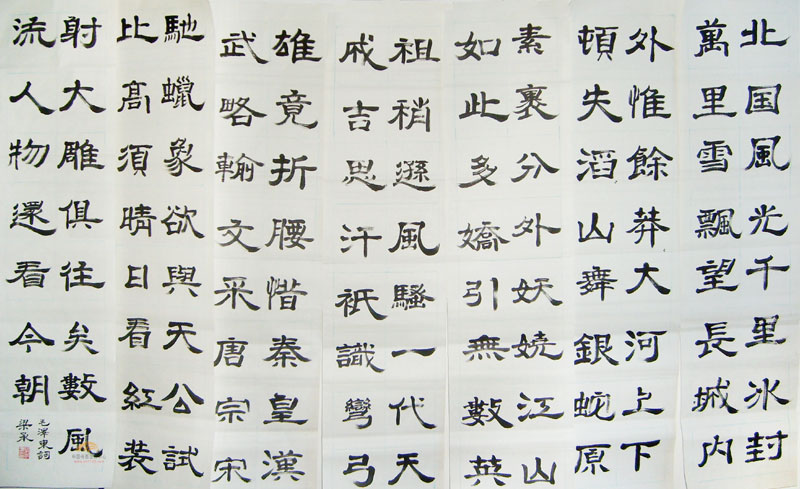 北国風光千里冰封
萬里雪飄望長城内
外惟餘莽大河上下
頓失滔山舞銀蛇原
素裹分外妖嬈江山
如此多嬌引無數英
祖稍遜風騷一代天
戚吉思汗祇識彎弓
雄竟折腰惜秦皇漢
武略輸文采唐宗宋
馳蠟象欲與天公試
比高須晴日看紅装
射大雕俱往矣數風
流人物還看今朝
毛澤東詞
梁